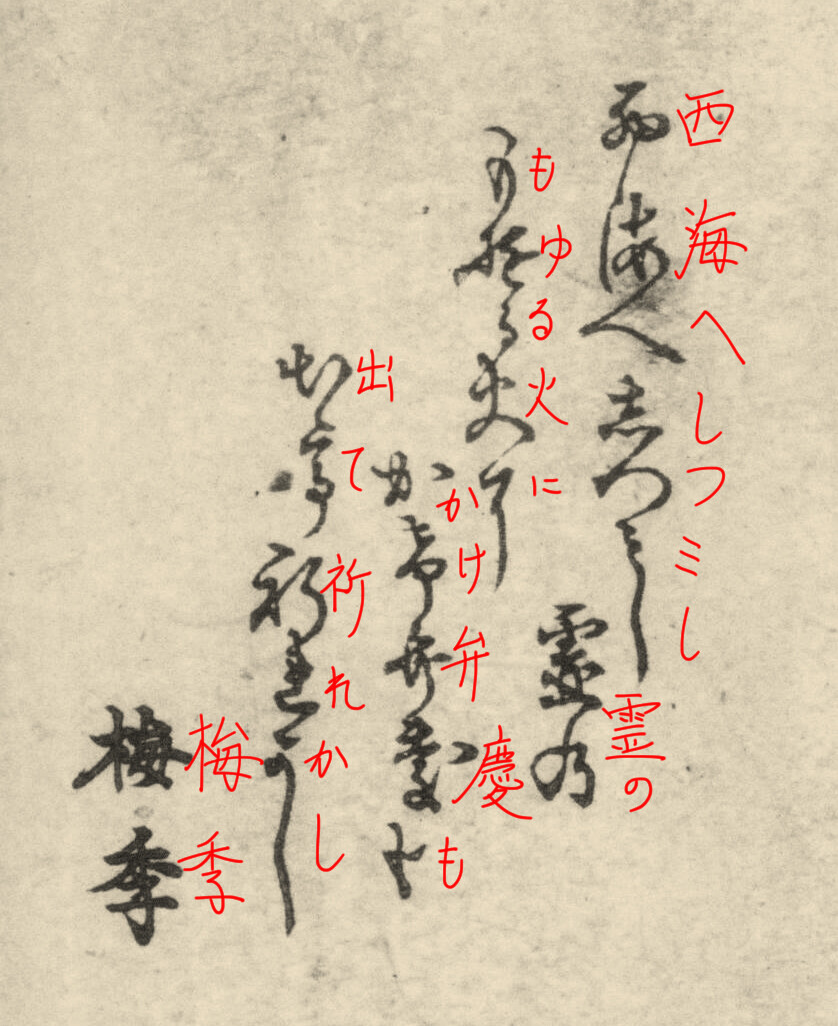 西海へしつミし
霊の
もゆる火に
かけ弁慶も
出て祈れかし
梅季